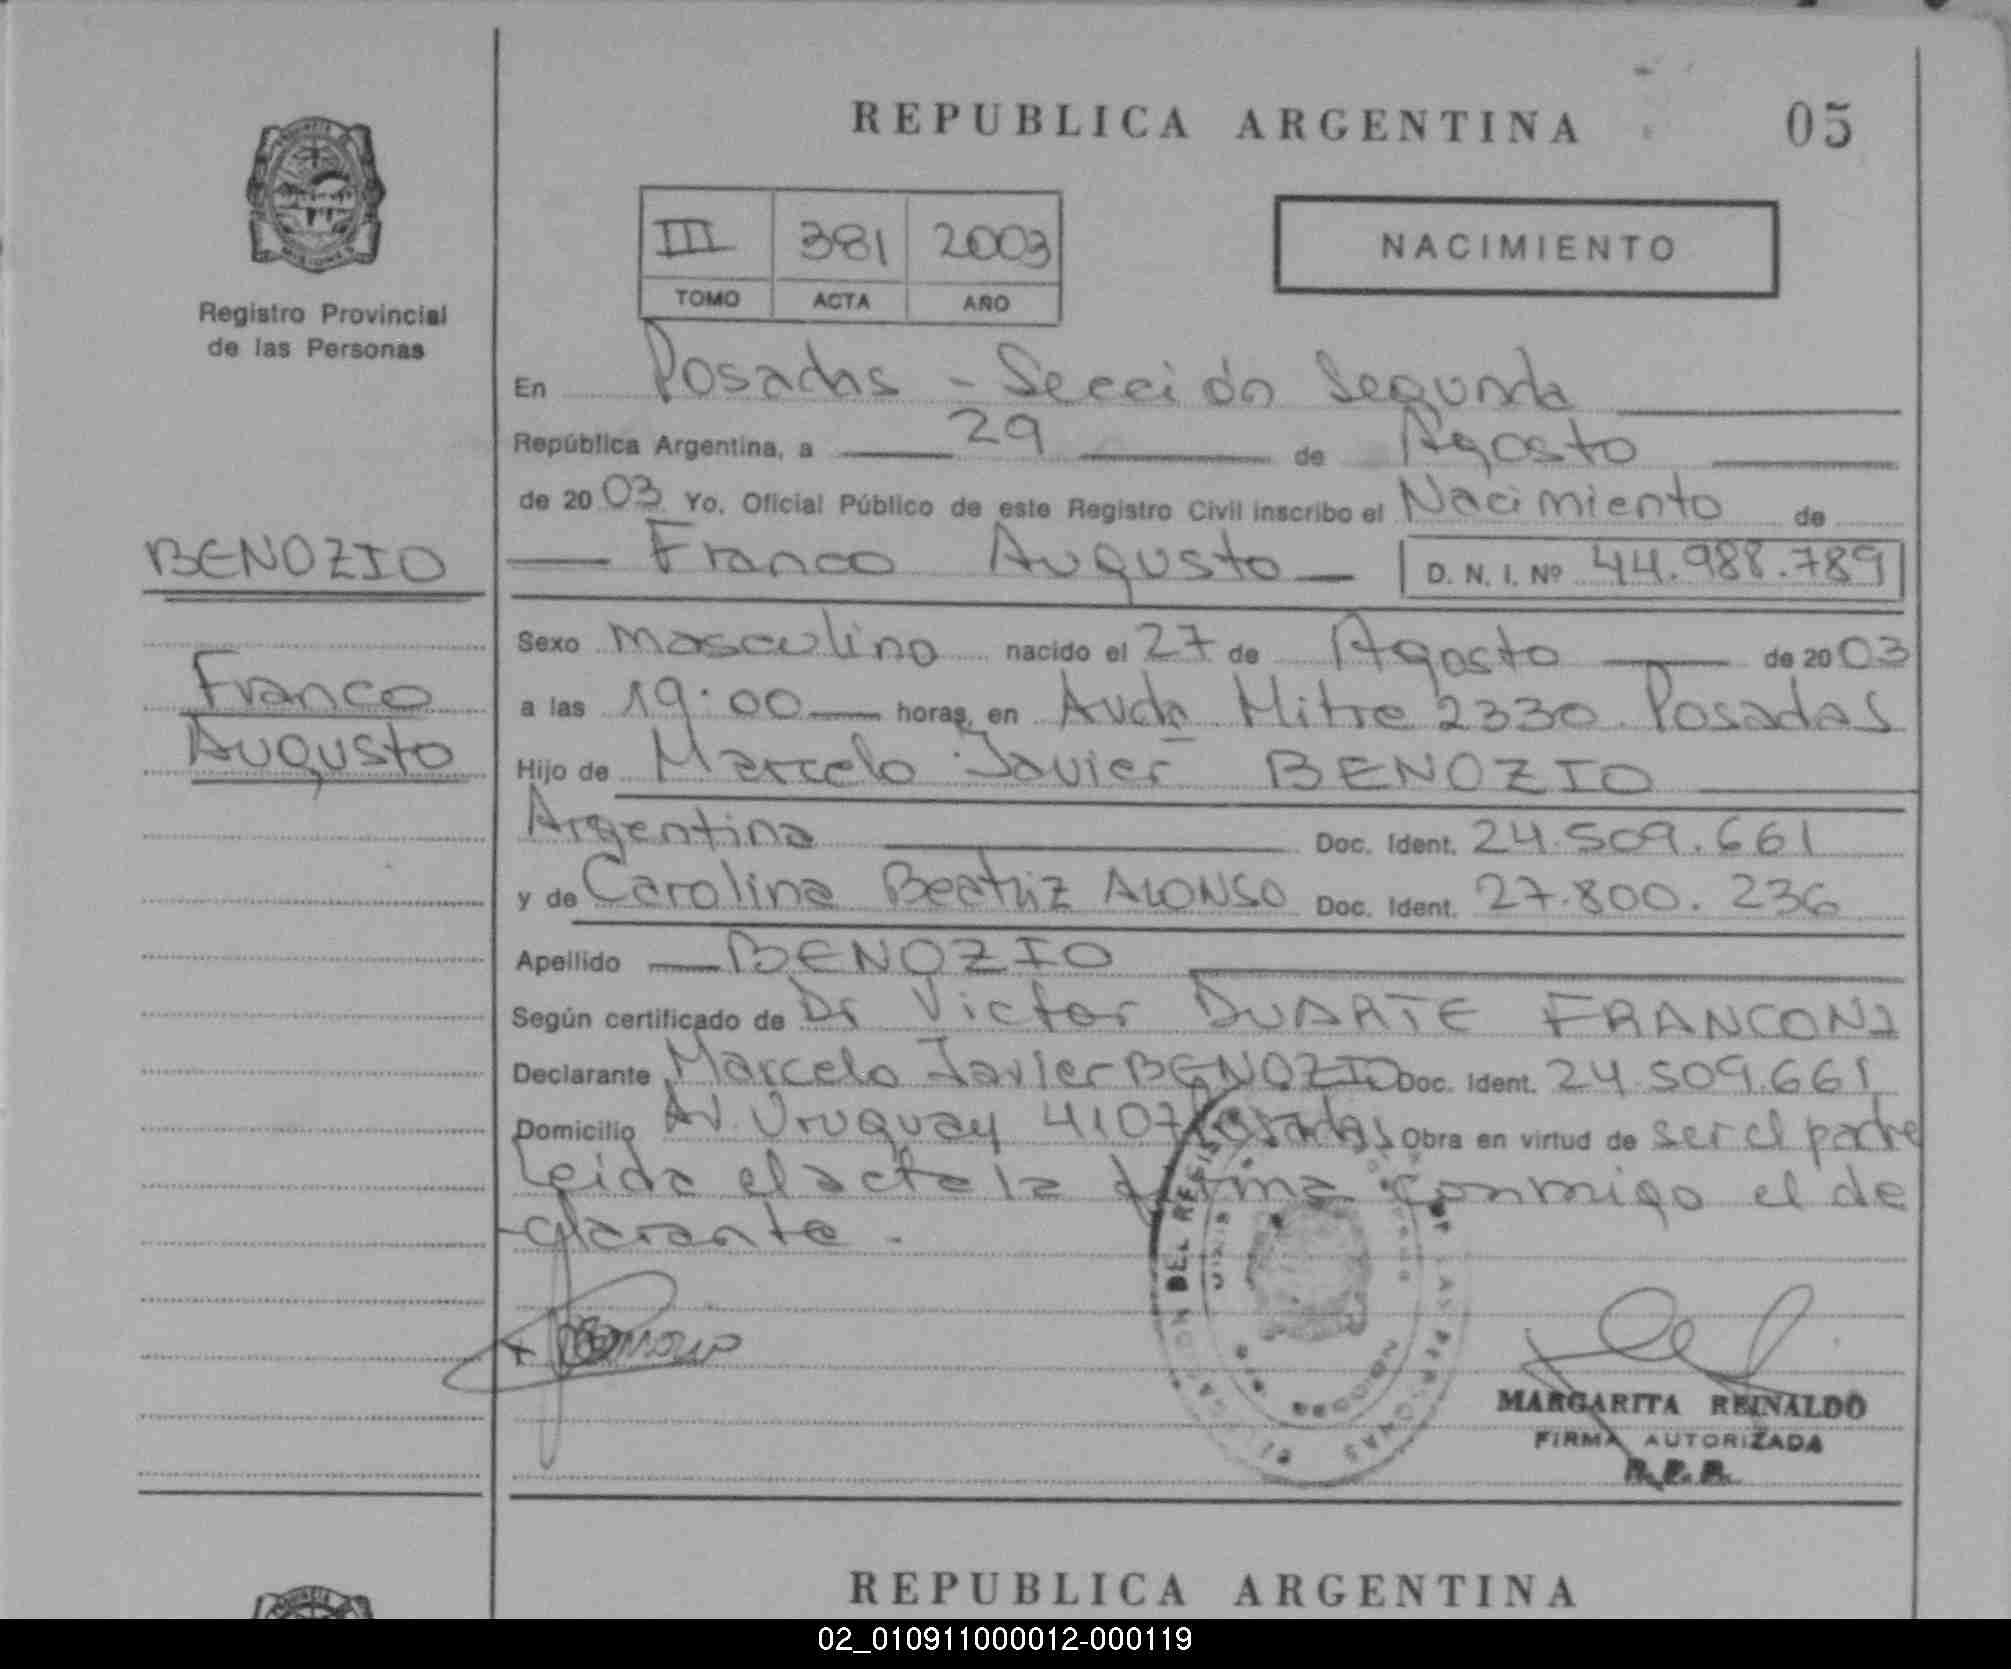 REPUBLICA ARGENTINA 05
III 381 2003
TOMO ACTA AÑO
NACIMIENTO
Registro Provincial
de las Personas
En Posadas - Sección Segunda
República Argentina, a 29 de Agosto
de 2003 Yo, Oficial Público de este Registro Civil inscribo el Nacimiento de
BENOZIO
Franco Augusto D. N. I. Nº 44.988.789
Sexo masculino nacido el 27 de Agosto de 2003
Franco
a las 19:00 horas, en Avda Mitre 2330 Posadas
Augusto
Hijo de Marcelo Javier BENOZIO
Argentina Doc. Ident. 24.509.661
y de Carolina Beatriz ALONSO Doc. Ident. 27.800.236
Apellido BENOZIO
Según certificado de Dr Victor DUARTE FRANCONI
Declarante Marcelo Javier BENOZIO Doc. Ident. 24.509.661
Domicilio Av. Uruguay 4107 Posadas Obra en virtud de ser el padre
Leida el acta la firma conmigo el de
clarante.
MARGARITA REINALDO
FIRMA AUTORIZADA
R.P.P.
REPUBLICA ARGENTINA
02_010911000012-000119